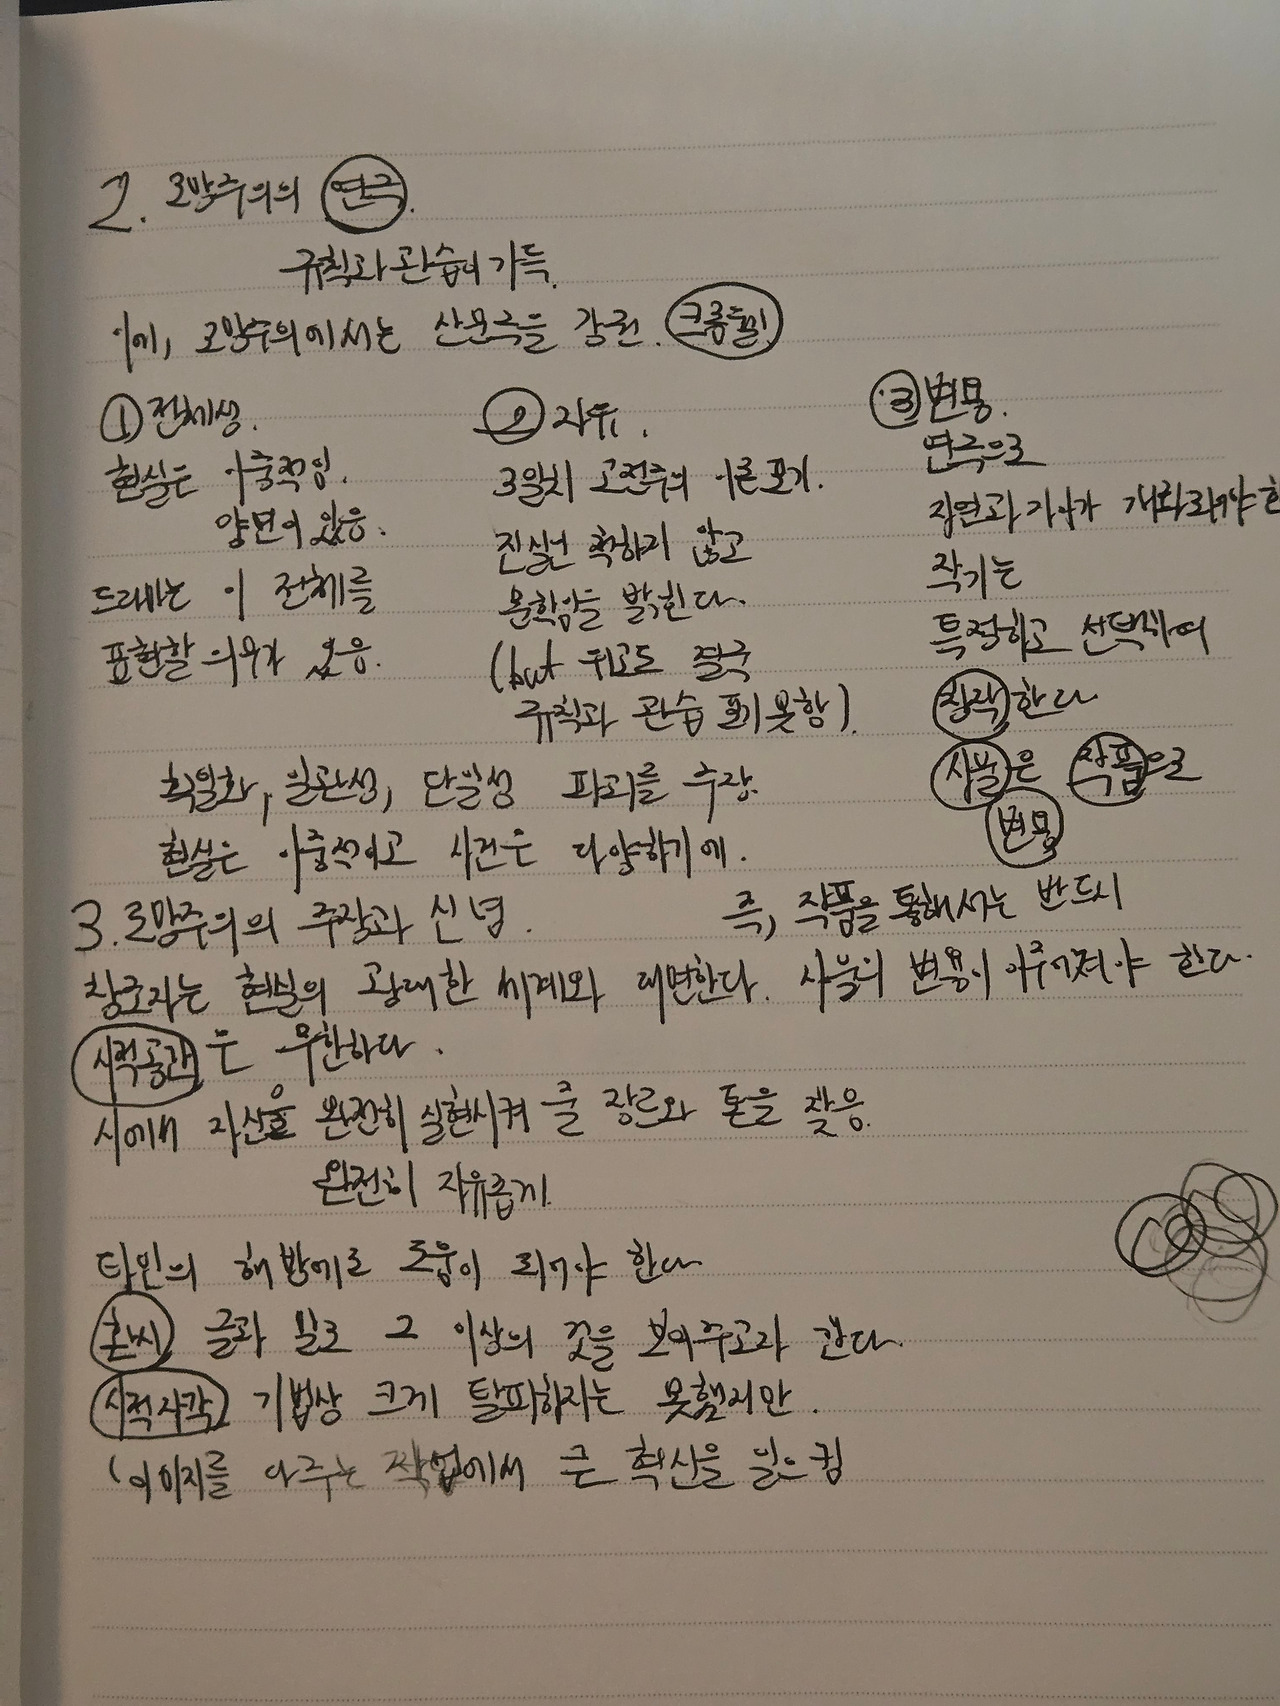 2. 로망주의의 연극.
규칙과 관습이 가득.
이에, 로망주의에서는 산문극을 강권. 크롬웰
① 전체성.
현실은 이중적임.
양면이 있음.
드라마는 이 전체를
표현할 의무가 있음.
② 자유.
3일치 고전주의 이론 포기.
진실만 척하지 않고
문학임을 밝힌다.
(but 위고도 결국
규칙과 관습 포기 못함).
③ 변용.
연극으로
자연과 기이가 개화되어야 한
작가는
특정하고 선택하여
창작한다
사물은 작품으로
변용
획일화, 일관성, 단일성 파괴를 주장.
현실은 이중적이고 사건은 다양하기에.
즉, 작품을 통해서는 반드시
사물의 변용이 이루어져야 한다.
3. 로망주의의 주장과 신념.
창조자는 현실의 광대한 세계와 대면한다.
시적공간은 무한하다.
시에게 자신을 완전히 실현시켜 줄 장르와 톤을 찾음.
완전히 자유롭게.
타인의 해방에로 도움이 되어야 한다
글과 말로 그 이상의 것을 보여주고자 간다.
시적자각 기법상 크게 탈피하지는 못했지만.
이미지를 다루는 작업에서 큰 혁신을 일으킴